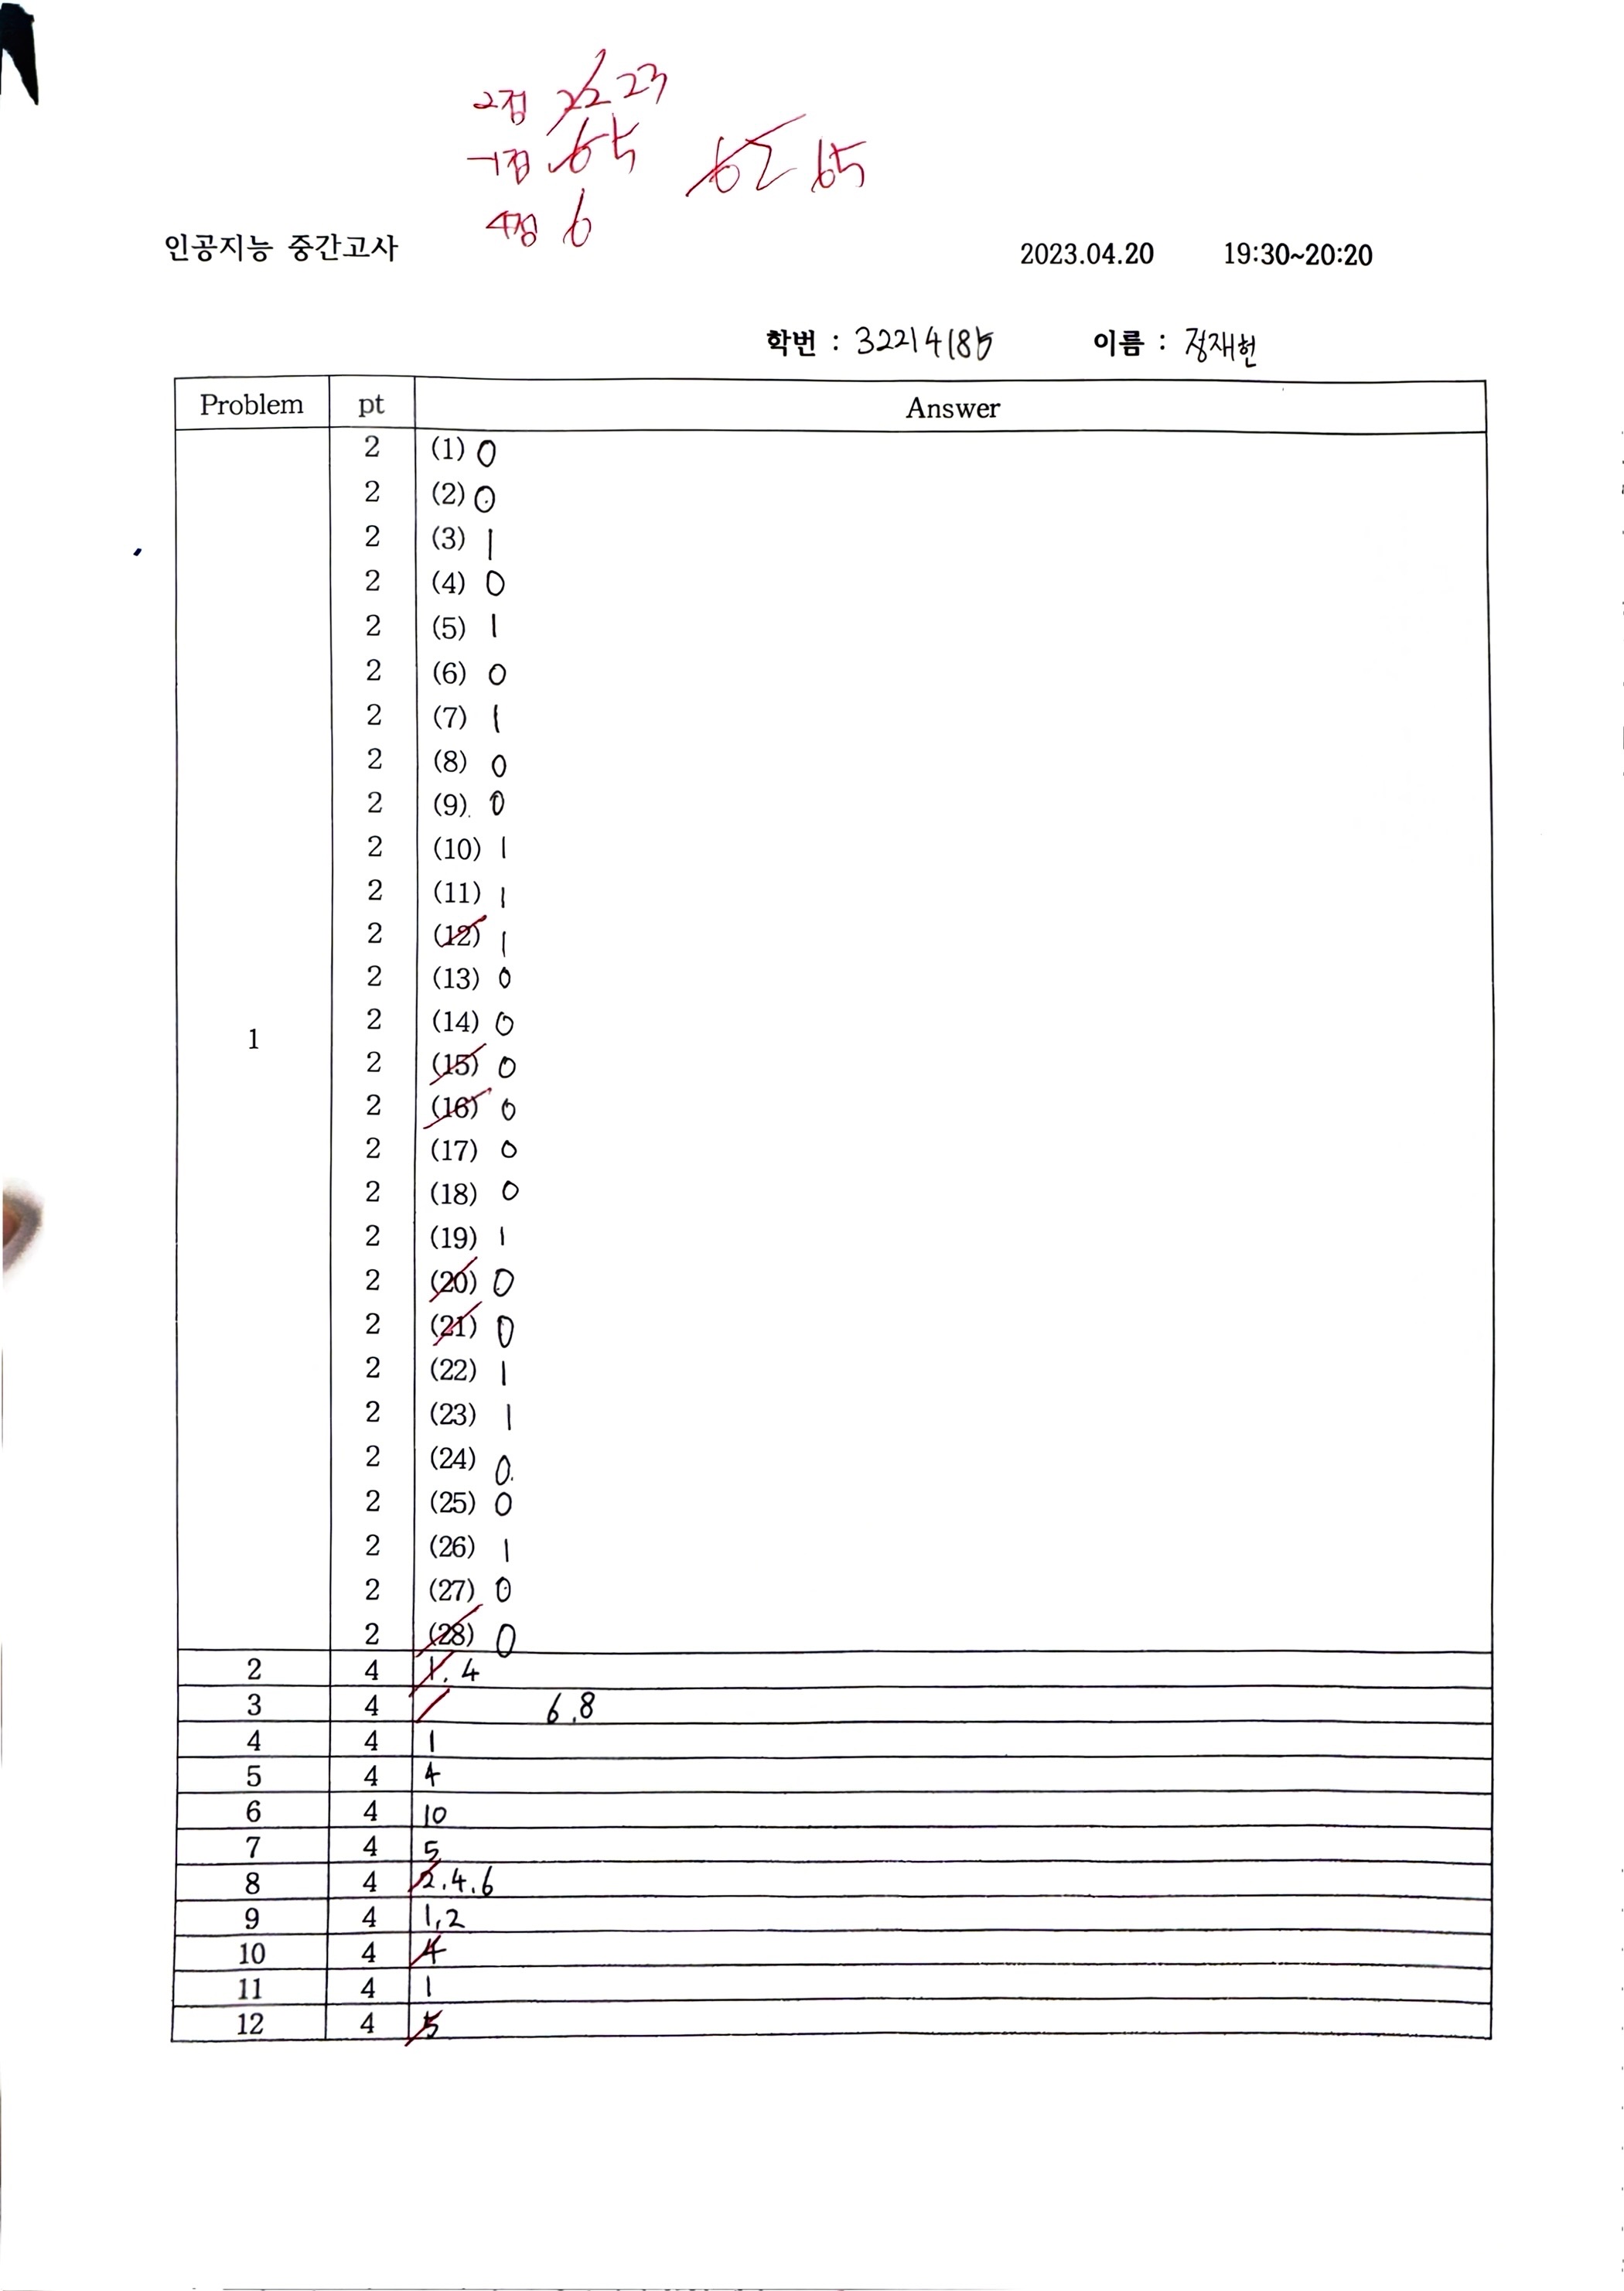 2점 22 23
-1점 6 5 62 65
4점 6
인공지능 중간고사 2023.04.20 19:30~20:20
학번 : 32214185 이름 : 정재헌
Problem pt Answer
1
2 (1) 0
2 (2) 0
2 (3) 1
2 (4) 0
2 (5) 1
2 (6) 0
2 (7) 1
2 (8) 0
2 (9) 0
2 (10) 1
2 (11) 1
2 (12) 1
2 (13) 0
2 (14) 0
2 (15) 0
2 (16) 0
2 (17) 0
2 (18) 0
2 (19) 1
2 (20) 0
2 (21) 0
2 (22) 1
2 (23) 1
2 (24) 0
2 (25) 0
2 (26) 1
2 (27) 0
2 (28) 0
2 4 1. 4
3 4 6.8
4 4 1
5 4 4
6 4 10
7 4 5
8 4 2.4.6
9 4 1,2
10 4 4
11 4 1
12 4 5